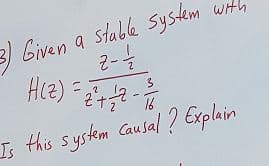 3) Given a stable system with
H(z) = (z - 1/2) / (z² + 1/2 z - 3/16)
Is this system causal? Explain